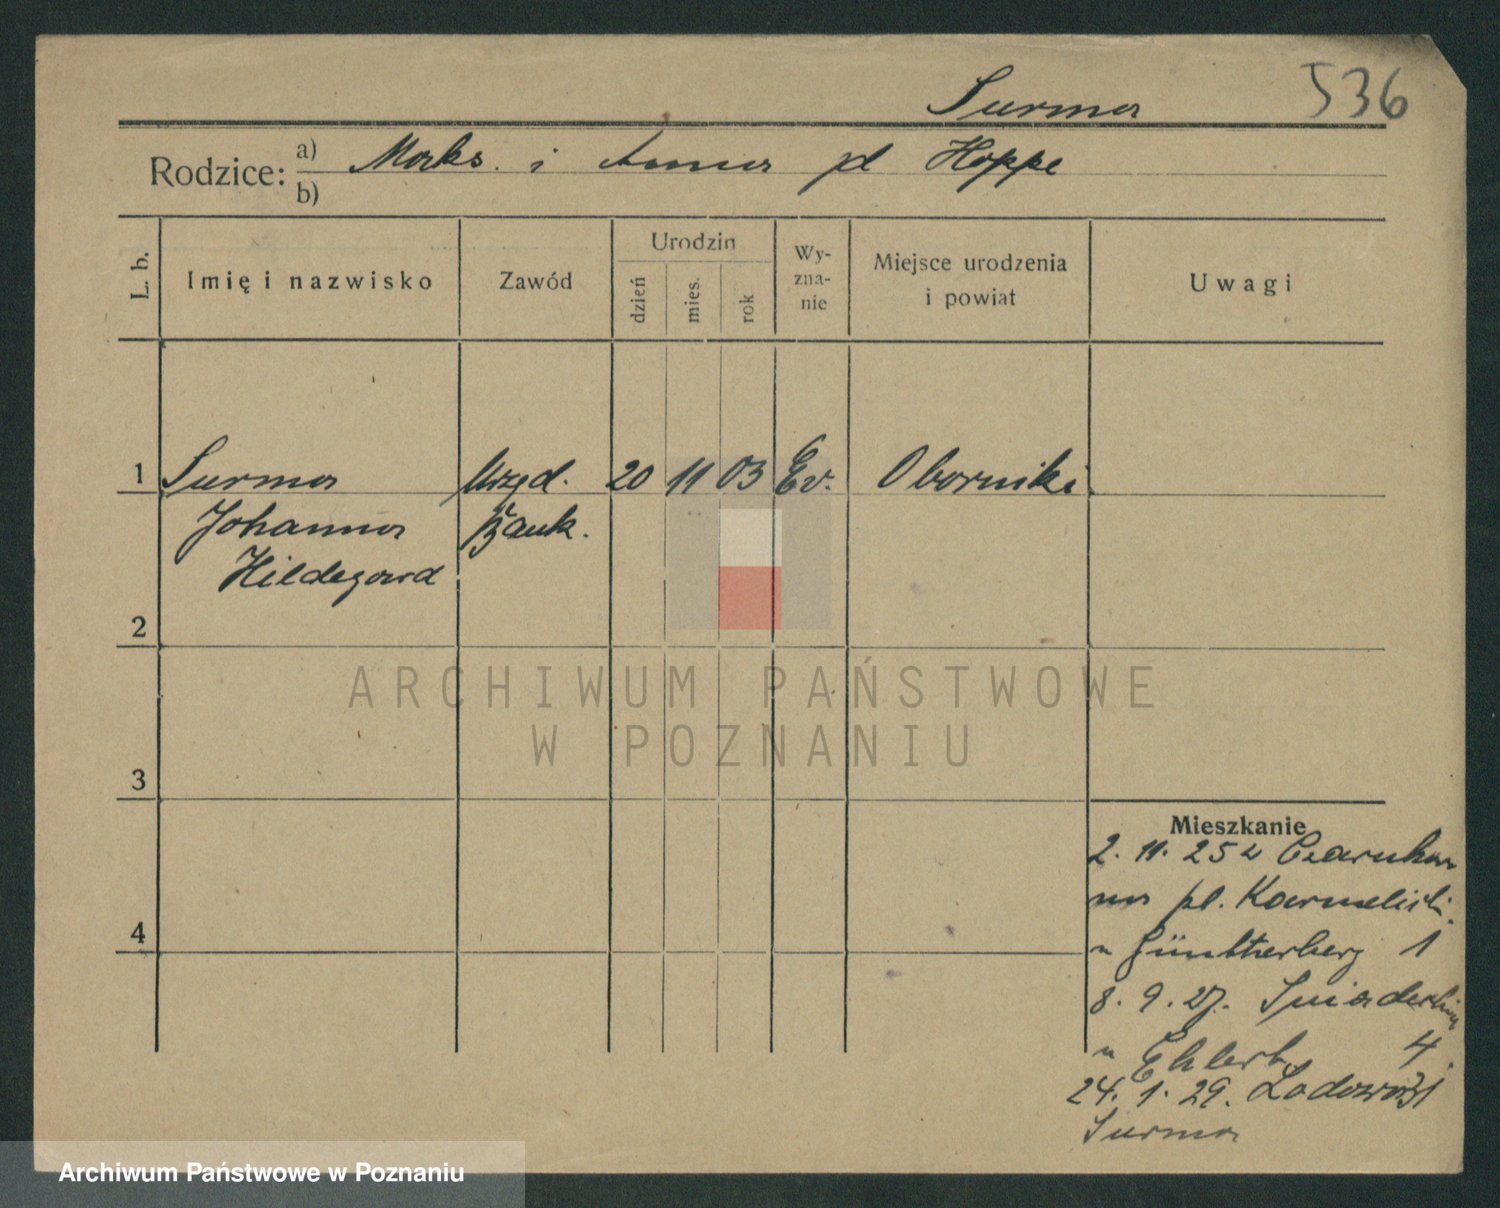 Surma 536
Rodzice: a) Maks. i Anna pd Hoppe
b)
L. b. Imię i nazwisko Zawód Urodzin dzień mies. rok Wy-zna-nie Miejsce urodzenia i powiat Uwagi
1 Surma Urzęd. 20 11 03 Ev. Oborniki
Johanna Bank.
Hildegard
2
ARCHIWUM PAŃSTWOWE
W POZNANIU
3
Mieszkanie
2. 11. 25 z Czarnkow
na pl. Karmelicki
u Güntherberg 1
8. 9. 27. Śniadeckich
u Ehlert 4.
24. 1. 29.
Surma
4
Archiwum Państwowe w Poznaniu